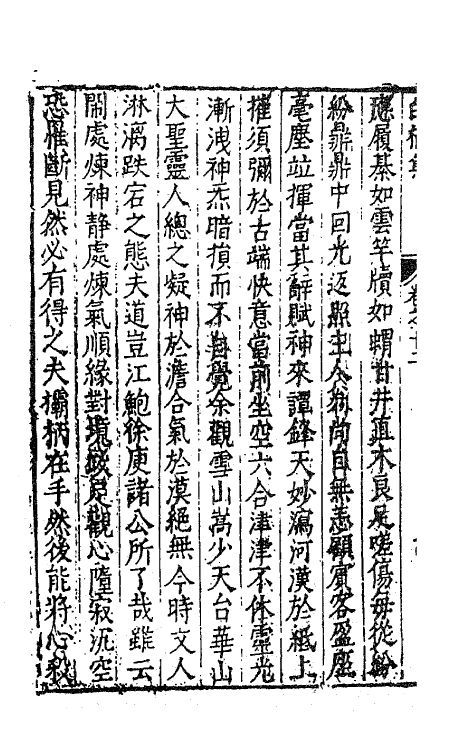 白榆集 卷之十二
應履綦如雲竿牘如蝟甘井直木良足嗟傷每從紛
紛鼎鼎中回光返照主人無恙顧賓客盈座
毫麈並揮當其辭賦神來譚鋒天妙瀉河漢於紙上
摧須彌於舌端快意當前坐空六合津津不休靈光
漸洩神炁暗損而不自覺余觀雪山嵩少天台華山
大聖靈人總之凝神於澹合氣於漠絕無今時文人
淋漓跌宕之態夫道豈江鮑徐庾諸公所了哉雖云
鬧處煉神靜處煉氣順緣對境皆足觀心墮寂沉空
恐惟斷見然必有得之夫欛柄在手然後能將心殺